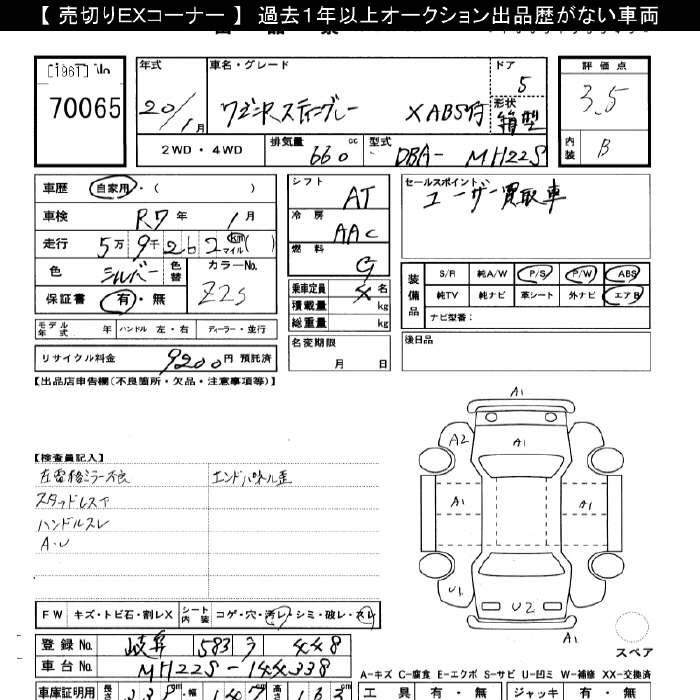 【 売切りEXコーナー 】 過去1年以上オークション出品歴がない車両
[1961]
70065
年式
20/1月
車名・グレード
ワゴンRスティングレー XABS付
ドア
5
形状
箱型
2WD・4WD
排気量
660 cc
型式
DBA- MH22S
評価点
3.5
内装
B
車歴 自家用・( )
車検 R7年 1月
走行 5万9千262 km マイル( )
色 シルバー 色替
カラーNo.
Z2S
保証書 有・無
モデル年式 年 ハンドル 左・右 ディーラー・並行
リサイクル料金 9200円 預託済
シフト
AT
冷房
AAC
燃料
G
乗車定員 4名
積載量 kg
総重量 kg
名変期限
月 日
セールスポイント
ユーザー買取車
装備品
S/R 純A/W P/S P/W ABS
純TV 純ナビ 革シート 外ナビ エアB
ナビ型番：
後日品
【出品店申告欄(不良箇所・欠品・注意事項等)】
【検査員記入】
左電格ミラー不良 エンドパネル歪
スタッドレス下
ハンドルスレ
A・U
A1
A2
A1
A1
A1
U1
U2
A1
スペア
FW キズ・トビ石・割レX シート内装 コゲ・穴・汚レ・シミ・破レ・スレ
登録No. 岐阜 583 ラ 448
車台No. MH22S-144338
A-キズ C-腐食 E-エクボ S-サビ U-凹ミ W-補修 XX-交換済
車庫証明用 長さ 338 cm 幅 147 cm 高さ 163 cm
工具 有・無 ジャッキ 有・無